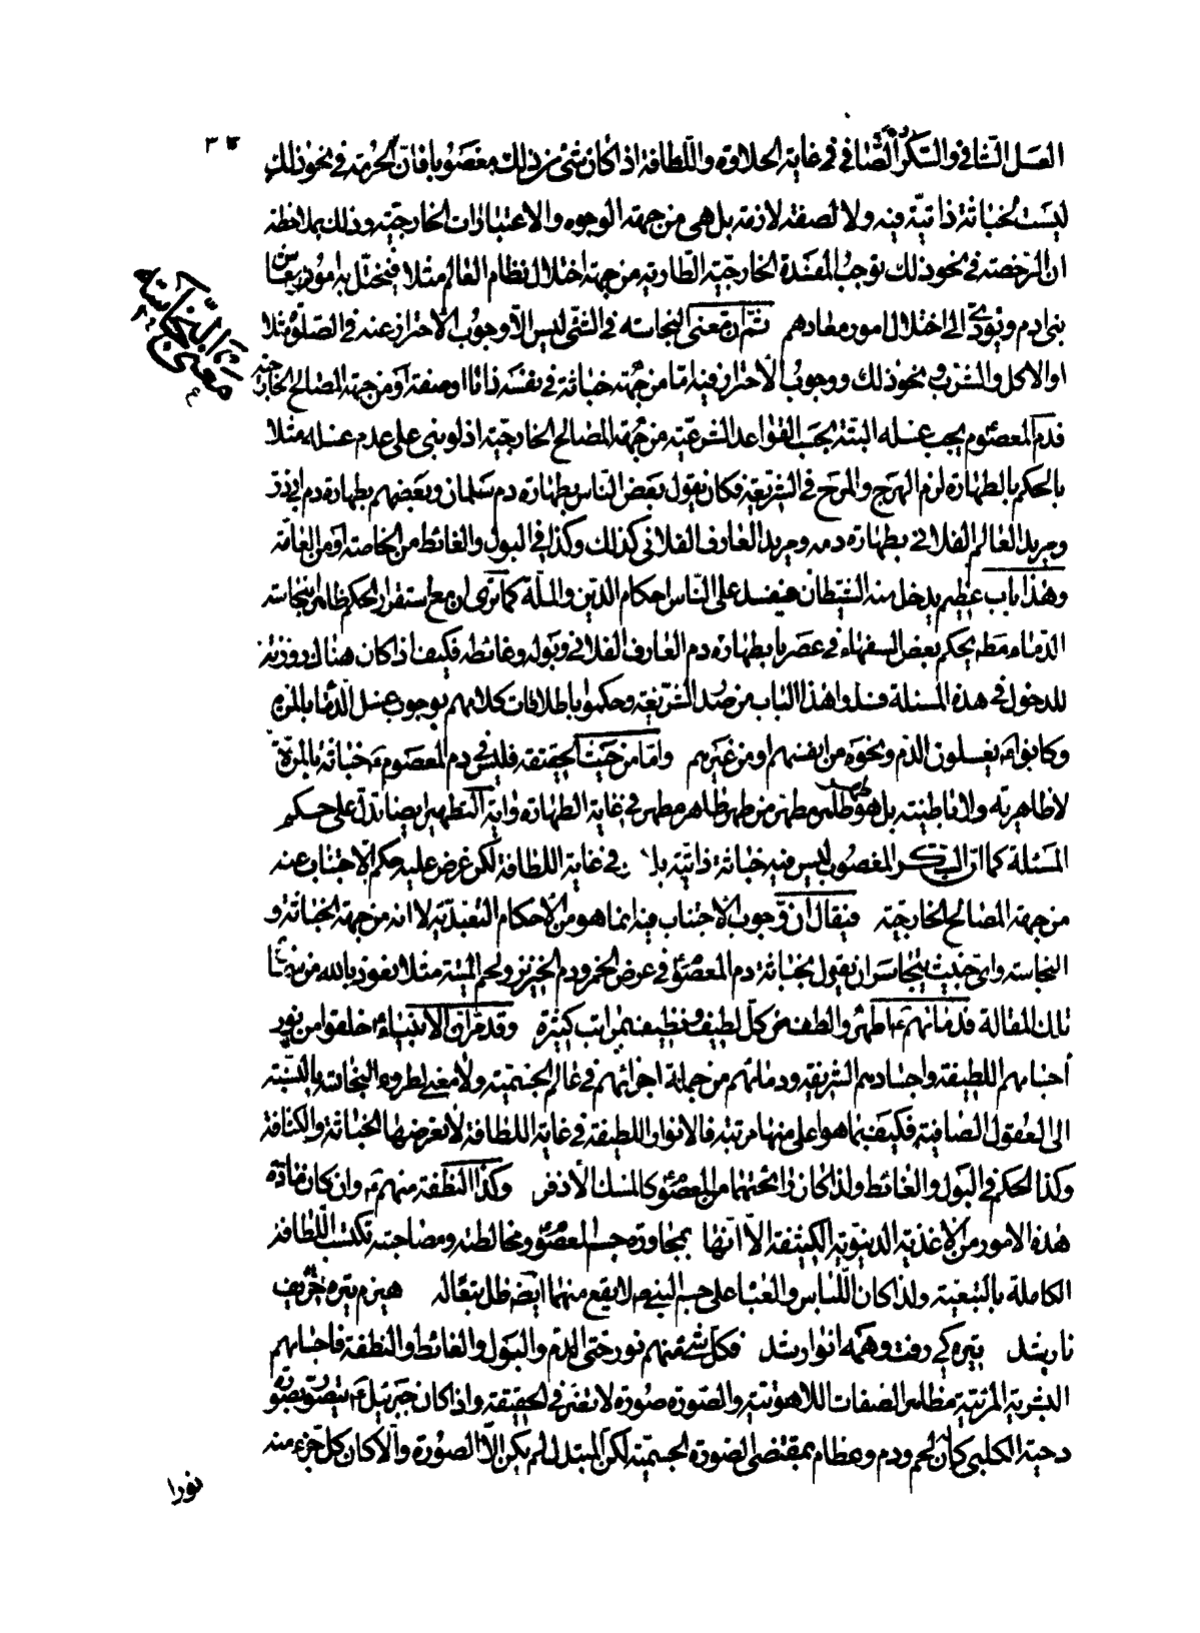 العسل الشافي والسكر الصافي في غاية الحلاوة واللطافة اذا كان شئ من ذلك مغصوبا فان الحرمة في نحو ذلك
ليست لخباثة ذاتية فيه ولا لصفة لازمة بل هي من جهة الوجوه والاعتبارات الخارجية وذلك بملاحظة
ان الرخصة في نحو ذلك توجب المفسدة الخارجية الطارية من جهة اختلال نظام العالم مثلا فيختل به امور معاش
بني ادم ويؤدي الى اختلال امور معادهم ثم ان معنى النجاسة في الشئ ليس الا وجوب الاحتراز عنه في الصلوة مثلا
او الاكل والشرب ونحو ذلك ووجوب الاحتراز فيه اما من جهة خباثة في نفسه ذاتا او صفة او من جهة المصالح الخارجية
معنى النجاسة
فدم المعصوم يجب غسله البتة بحسب القواعد الشرعية من جهة المصالح الخارجية اذ لو بنى على عدم غسله مثلا
بالحكم بالطهارة لزم الهرج والمرج في الشريعة فكان يقول بعض الناس بطهارة دم سلمان وبعضهم بطهارة دم ابي ذر
ومريد العالم الفلاني بطهارة دمه ومريد العارف الفلاني كذلك وكذا في البول والغائط من الخاصة او من العامة
وهذا باب عظيم يدخل منه الشيطان فيفسد على الناس احكام الدين والملة كما ترى ان مع استقرار الحكم ظاهرا بنجاسة
الدماء مط يحكم بعض السفهاء في عصرنا بطهارة دم العارف الفلاني وبوله وغائطه فكيف اذا كان هناك روزنة
للدخول في هذه المسئلة فسدوا هذا الباب من صدر الشريعة وحكموا باطلاقات كلامهم بوجوب غسل الدماء بالمرة
وكانوا يغسلون الدم ونحوه من انفسهم او من غيرهم واما من حيث الحقيقة فليس في دم المعصوم ع خباثة بالمرة
لا ظاهرية ولا باطنية بل هو طاهر مطهر من طهر طاهر مطهر في غاية الطهارة واية التطهير ايضا تدل على حكم
المسئلة كما ان السكر المغصوب ليس فيه خباثة ذاتية بل في غاية اللطافة لكن عرض عليه حكم الاجتناب عنه
من جهة المصالح الخارجية فيقال ان وجوب الاجتناب فيه انما هو من الاحكام التعبدية لا انه من جهة الخباثة و
النجاسة واى خبيث يتجاسر ان يقول بخباثة دم المعصوم في عرض الخمر ودم الخنزير ولحم الميتة مثلا نعوذ بالله من
تلك المقالة فدمائهم ع اطهر والطف من كل لطيف ونظيف بمراتب كثيرة وقد مر ان الانبياء خلقوا من نور
اجسامهم اللطيفة واجسادهم الشريفة ودمائهم من جملة اجزائهم في عالم الجسمية ولا معنى لطروء النجاسة بالنسبة
الى العقول الصافية فكيف بما هو اعلى منها مرتبة فالانوار اللطيفة في غاية اللطافة لا يعرضها الخباثة والكثافة
وكذا الحكم في البول والغائط ولذا كان رائحتهما من المعصوم كالمسك الاذفر وكذا النطفة منهم ع وان كان مادة
هذه الامور من الاغذية الدنيوية الكثيفة الا انها بمجاورة جسم المعصوم ومخالطته ومصاحبته تكتسب اللطافة
الكاملة بالتبعية ولذا كان اللباس والعباء على جسم النبي ص لا يقع منهما ايضا ظل بتعالة هيزم تيره حريف
نار شد تيره كى رفت وهمه انوار شد فكل شئ منهم نور حتى الدم والبول والغائط والنطفة فاجسامهم
البشرية المرئية مظاهر الصفات اللاهوتية والصورة صورة لا تغير في الحقيقة واذا كان جبرئيل ع يتصور بصورة
دحية الكلبي كان لحم ودم وعظام بمقتضى الصورة الجسمية لكن المبتدل لم يكن الا الصورة والا كان كل جزء منه
نورا